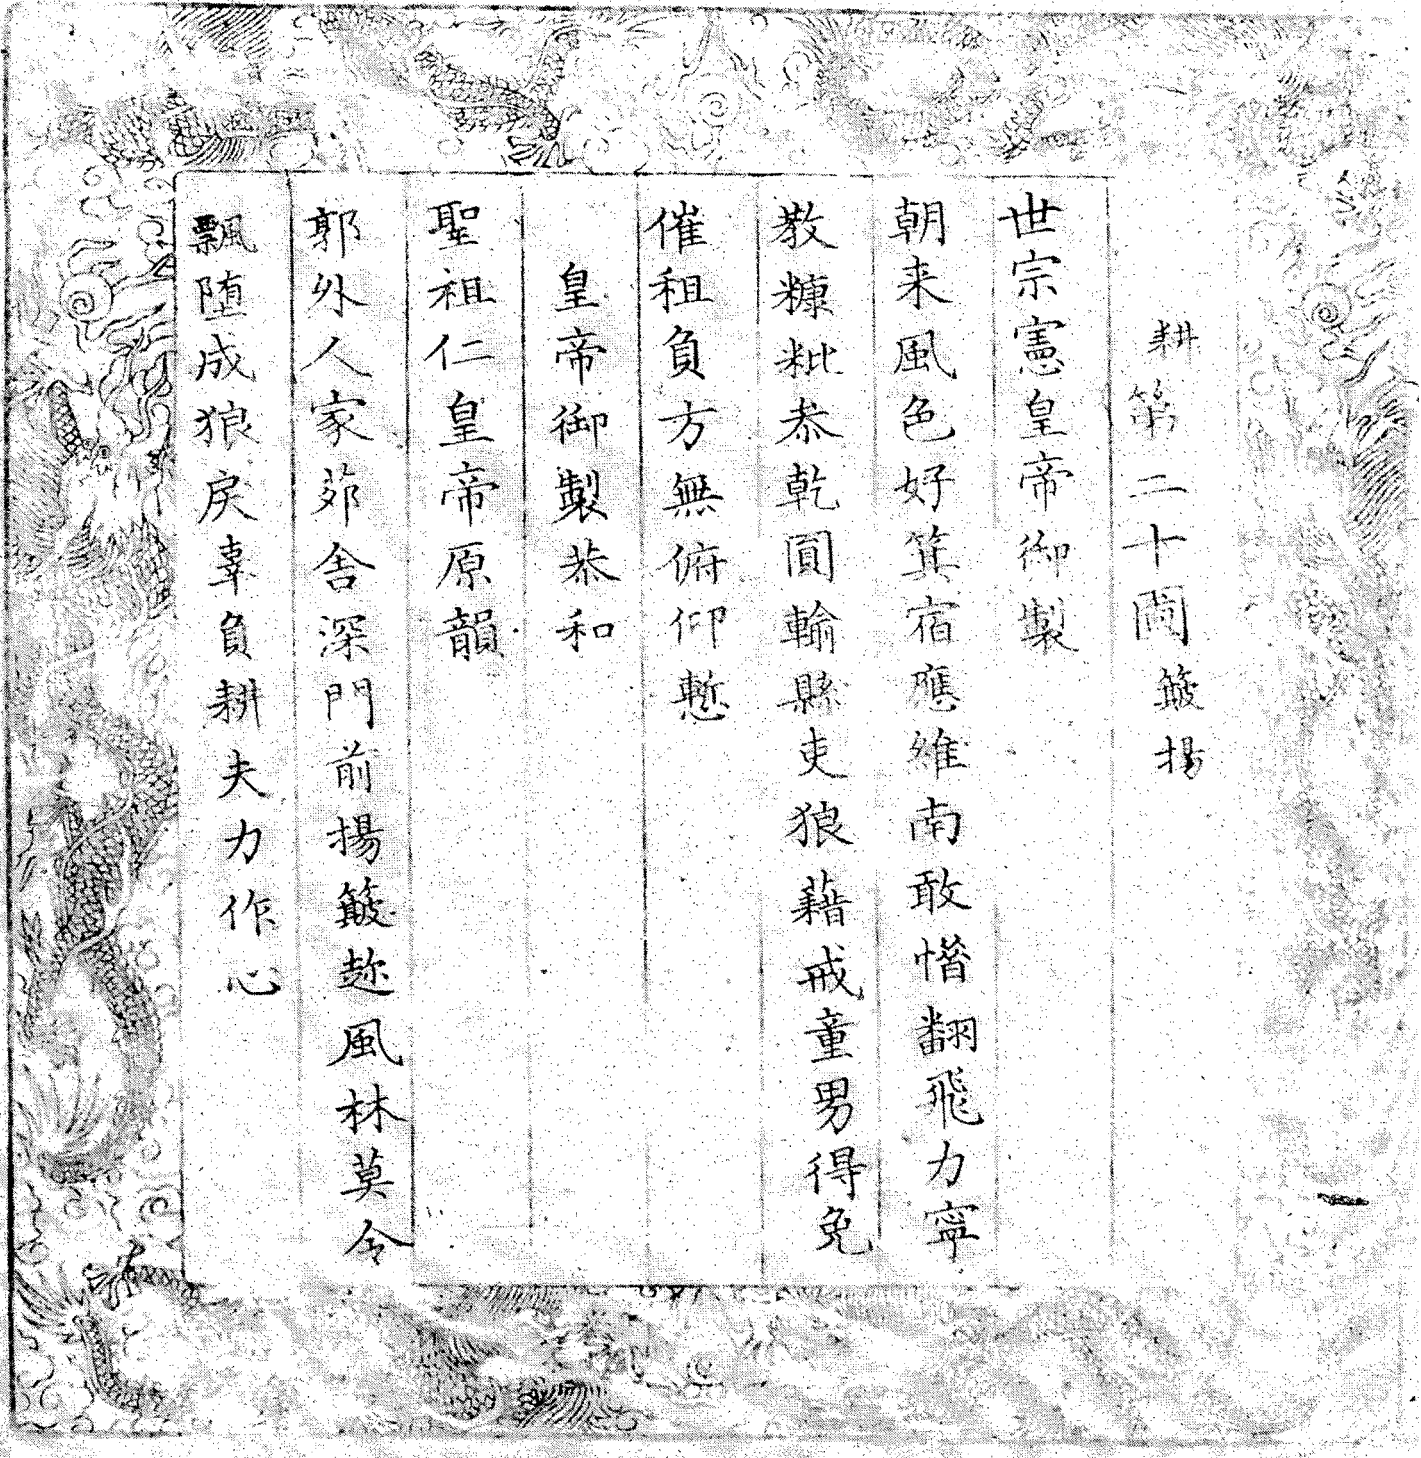 耕第二十圖簸揚
世宗憲皇帝御製
朝來風色好箕宿應維南敢惜翻飛力寧
教糠粃忝乾圓輸縣吏狼藉戒童男得免
催租負方無俯仰慙
皇帝御製恭和
聖祖仁皇帝原韻
郭外人家茆舍深門前揚簸趂風林莫令
飄墮成狼戾辜負耕夫力作心